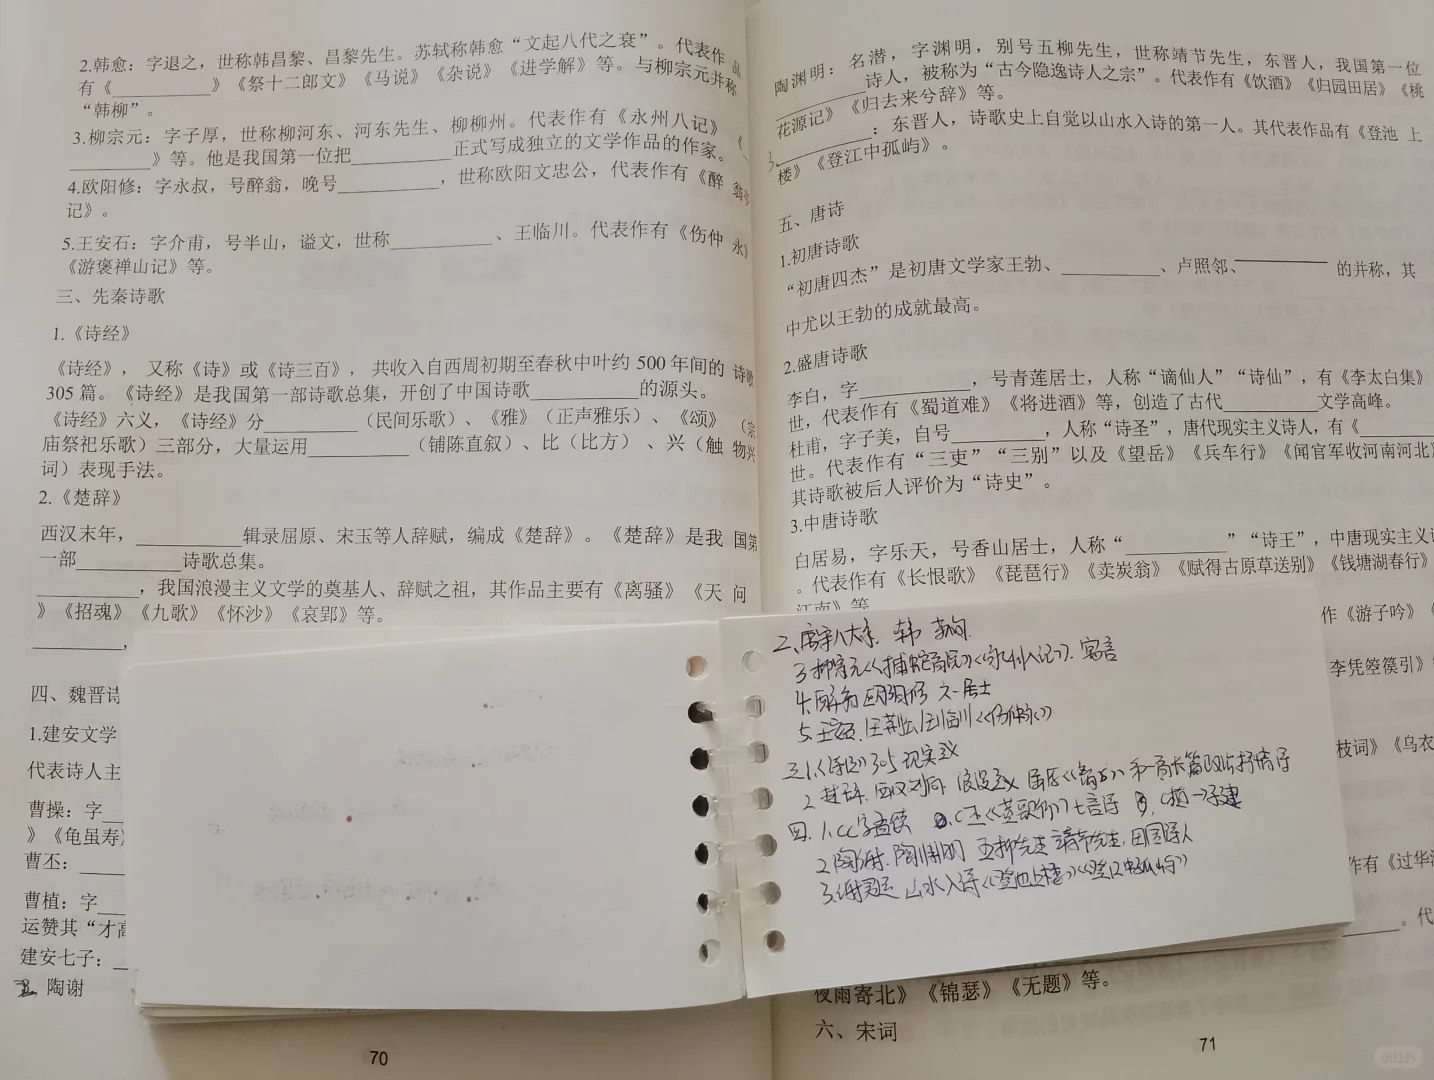 2.韩愈：字退之，世称韩昌黎、昌黎先生。苏轼称韩愈“文起八代之衰”。代表作 品
有《__________》《祭十二郎文》《马说》《杂说》《进学解》等。与柳宗元并称
“韩柳”。
3.柳宗元：字子厚，世称柳河东、河东先生、柳柳州。代表作有《永州八记》 《
________》等。他是我国第一位把__________正式写成独立的文学作品的作家。
4.欧阳修：字永叔，号醉翁，晚号__________，世称欧阳文忠公，代表作有《醉 翁亭
记》。
5.王安石：字介甫，号半山，谥文，世称__________、王临川。代表作有《伤仲 永》
《游褒禅山记》等。
三、先秦诗歌
1.《诗经》
《诗经》，又称《诗》或《诗三百》，共收入自西周初期至春秋中叶约 500 年间的 诗歌
305 篇。《诗经》是我国第一部诗歌总集，开创了中国诗歌__________的源头。
《诗经》六义，《诗经》分_________（民间乐歌）、《雅》（正声雅乐）、《颂》 （宗
庙祭祀乐歌）三部分，大量运用__________（铺陈直叙）、比（比方）、兴（触 物兴
词）表现手法。
2.《楚辞》
西汉末年，__________辑录屈原、宋玉等人辞赋，编成《楚辞》。《楚辞》是我 国第
一部__________诗歌总集。
__________，我国浪漫主义文学的奠基人、辞赋之祖，其作品主要有《离骚》《天 问
》《招魂》《九歌》《怀沙》《哀郢》等。
四、魏晋诗
1.建安文学
代表诗人主
曹操：字
》《龟虽寿》
曹丕：
曹植：字
运赞其“才高
建安七子：
2. 陶谢
70
陶渊明：名潜，字渊明，别号五柳先生，世称靖节先生，东晋人，我国第一位
_________诗人，被称为“古今隐逸诗人之宗”。代表作有《饮酒》《归园田居》《桃
花源记》《归去来兮辞》等。
_________：东晋人，诗歌史上自觉以山水入诗的第一人。其代表作有《登池 上
楼》《登江中孤屿》。
五、唐诗
1.初唐诗歌
“初唐四杰”是初唐文学家王勃、_________、卢照邻、_________ 的并称，其
中尤以王勃的成就最高。
2.盛唐诗歌
李白，字__________，号青莲居士，人称“谪仙人”“诗仙”，有《李太白集》
世，代表作有《蜀道难》《将进酒》等，创造了古代_________文学高峰。
杜甫，字子美，自号_________，人称“诗圣”，唐代现实主义诗人，有《_______
世。代表作有“三吏”“三别”以及《望岳》《兵车行》《闻官军收河南河北》
其诗歌被后人评价为“诗史”。
3.中唐诗歌
白居易，字乐天，号香山居士，人称“_________”“诗王”，中唐现实主义
。代表作有《长恨歌》《琵琶行》《卖炭翁》《赋得古原草送别》《钱塘湖春行》
江南》等
作《游子吟》《
李凭箜篌引》
枝词》《乌衣
作有《过华清
。代
夜雨寄北》《锦瑟》《无题》等。
六、宋词
71
二、唐宋八大家. 韩
3.柳宗元《捕蛇者说》《永州八记》. 寓言
4. 欧阳修 六一居士
5. 王荆公 王临川《伤仲永》
三1.《诗经》305 现实主义
2. 楚辞. 西汉刘向 浪漫主义 屈原《离骚》 第一首长篇政治抒情诗
四. 1. CC字孟德 CP《燕歌行》七言诗 C植→子建
2. 陶谢. 陶渊明 五柳先生 靖节先生. 田园诗人
3. 谢灵运 山水入诗《登池上楼》《登江中孤屿》
小红书